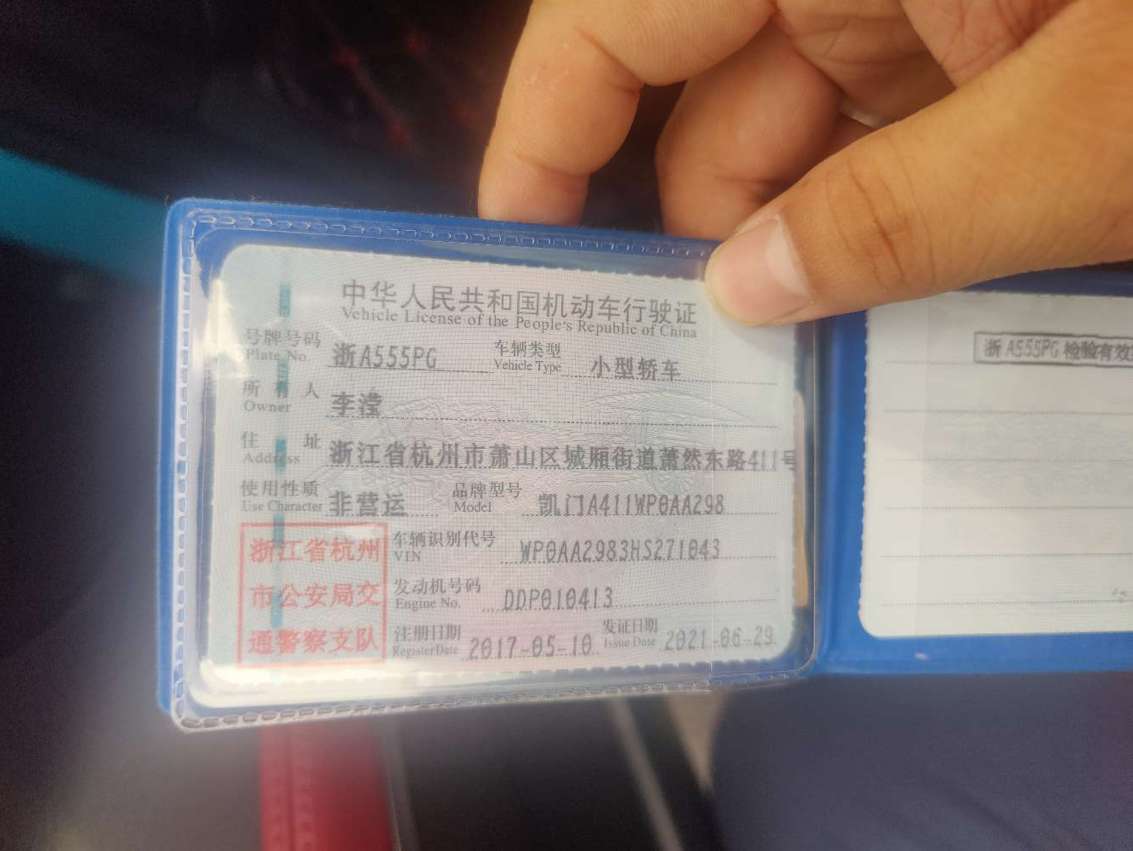 中华人民共和国机动车行驶证
Vehicle License of the People's Republic of China
号牌号码 浙A555PG 车辆类型 小型轿车
Plate No. Vehicle Type
所有人 李滢
Owner
住址 浙江省杭州市萧山区城厢街道萧然东路411号
Address
使用性质 非营运 品牌型号 凯门A411WP0AA298
Use Character Model
浙江省杭州 车辆识别代号 WP0AA2983HS271043
VIN
市公安局交 发动机号码 DDP010413
Engine No.
通警察支队 注册日期 2017-05-10 发证日期 2021-06-29
Register Date Issue Date
浙A555PG 检验有效